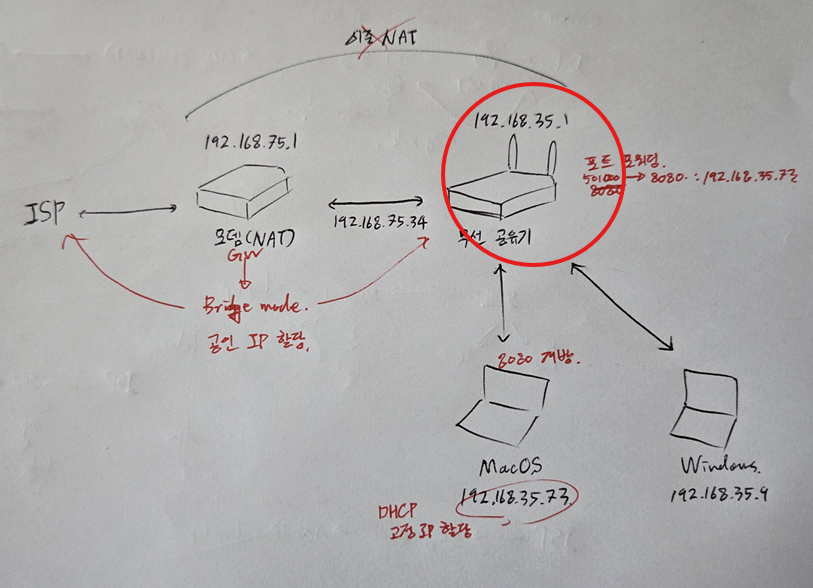 이중 NAT
192.168.75.1
192.168.35.1
포트 포워딩.
50000 → 8080 : 192.168.35.73
8080
ISP
192.168.75.34
모뎀(NAT)
GW
무선 공유기
Bridge mode.
공인 IP 할당.
8080 개방.
MacOS
192.168.35.73
Windows.
192.168.35.9
DHCP
고정 IP 할당